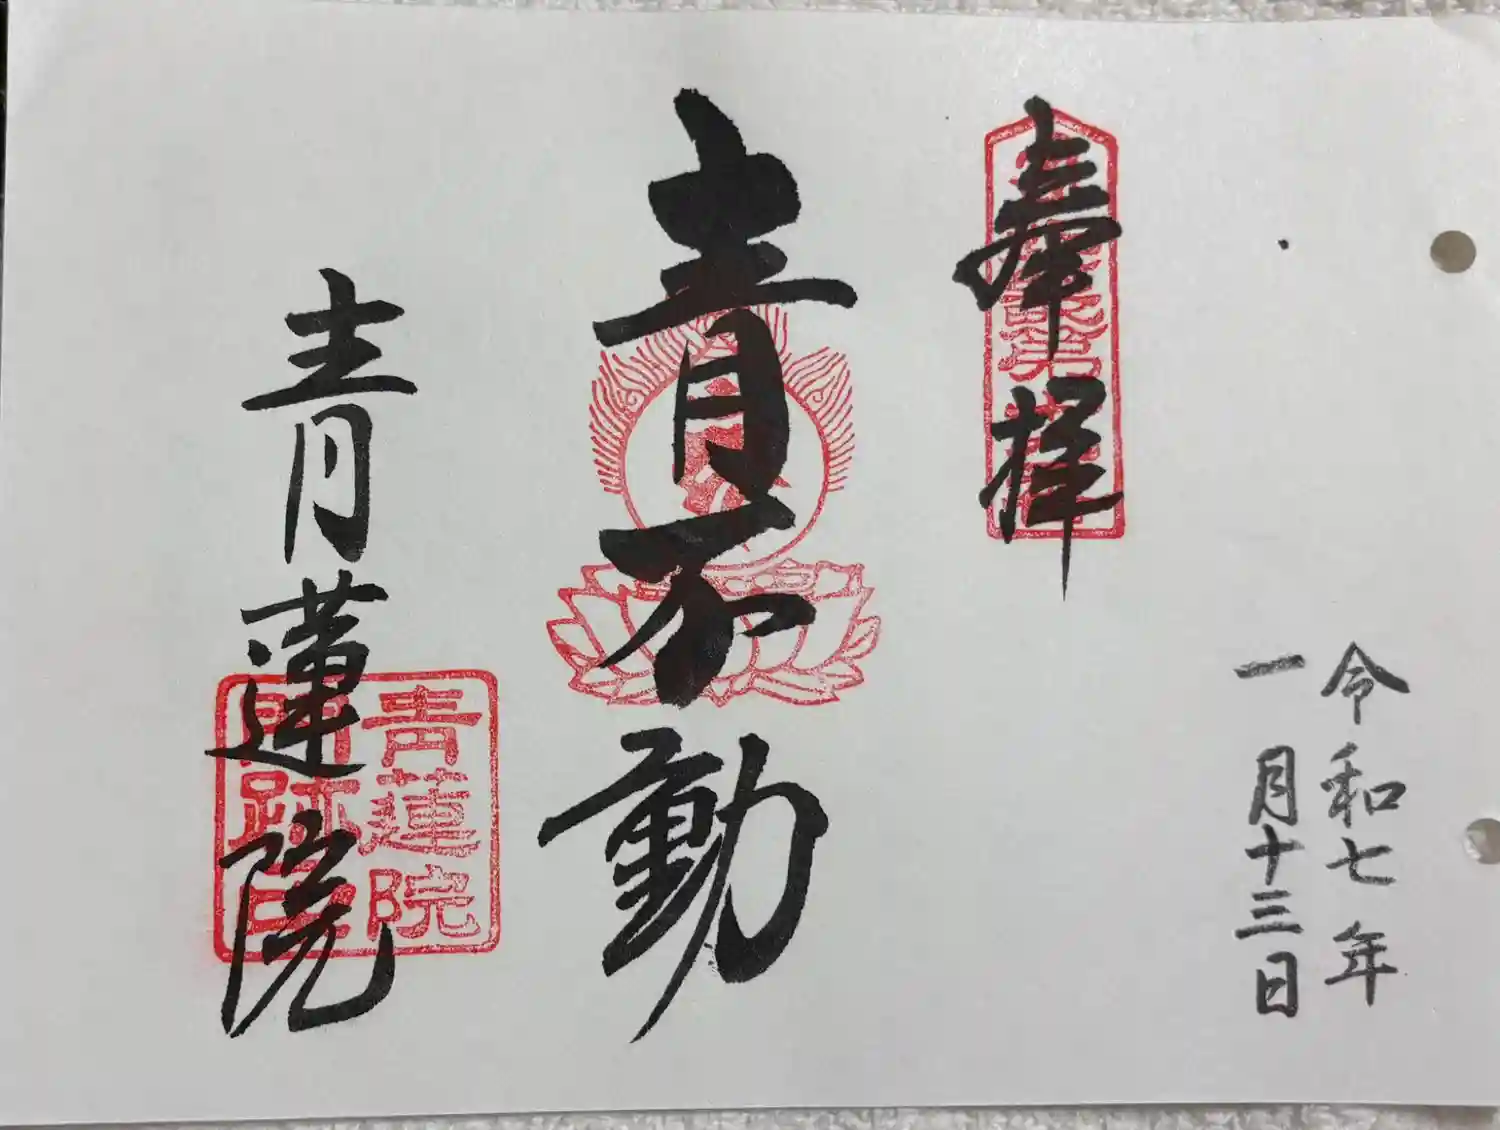 令和七年
一月十三日
奉拝
青不動
青蓮院
青蓮院
門跡印